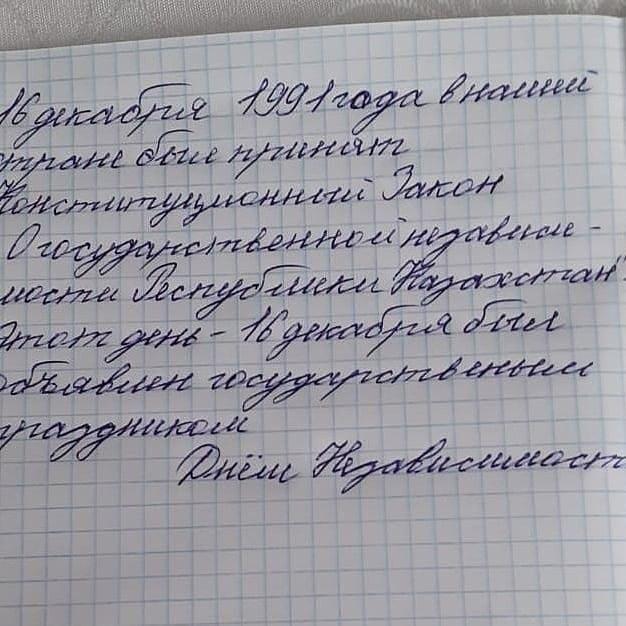 16 декабря 1991 года в нашей
стране был принят
Конституционный Закон
О государственной независи-
мости Республики Казахстан".
Этот день - 16 декабря был
объявлен государственым
праздником
Днём Независимост